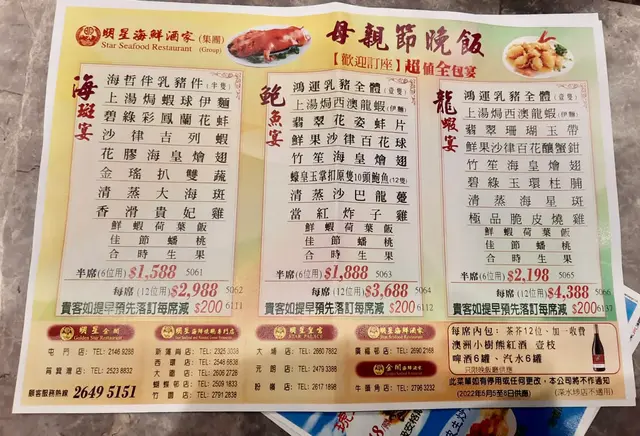 明星海鮮酒家 (集團)
Star Seafood Restaurant (Group)
母親節晚飯
【歡迎訂座】超值全包宴
海斑宴
海哲伴乳豬件 (半隻)
上湯焗蝦球伊麵
碧綠彩鳳蘭花蚌
沙律吉列蝦
花膠海皇燴翅
金瑤扒雙蔬
清蒸大海斑
香滑貴妃雞
鮮蝦荷葉飯
佳節蟠桃
合時生果
半席 (6位用) $1,588 5061
每席 (12位用) $2,988 5062
貴客如提早預先落訂每席減 $200 6111
鮑魚宴
鴻運乳豬全體 (壹隻)
上湯焗西澳龍蝦 (伊麵)
翡翠花姿蚌片
鮮果沙律百花球
竹笙海皇燴翅
蠔皇玉掌扣原隻10頭鮑魚 (12隻)
清蒸沙巴龍躉
當紅炸子雞
鮮蝦荷葉飯
佳節蟠桃
合時生果
半席 (6位用) $1,888 5063
每席 (12位用) $3,688 5064
貴客如提早預先落訂每席減 $200 6112
龍蝦宴
鴻運乳豬全體 (壹隻)
上湯焗西澳龍蝦 (伊麵)
翡翠珊瑚玉帶
鮮果沙律百花釀蟹鉗
竹笙海皇燴翅
碧綠玉環柱脯
清蒸海星斑
極品脆皮燒雞
鮮蝦荷葉飯
佳節蟠桃
合時生果
半席 (6位用) $2,198 5065
每席 (12位用) $4,388 5066
貴客如提早預先落訂每席減 $200 6137
明星金閣
Golden Star Restaurant
屯門店 TEL: 2146 9288
筲箕灣店 TEL: 2523 8832
顧客服務熱線 2649 5151
明星海鮮燒鵝專門店
新蒲崗店 TEL: 2325 3038
西環店 TEL: 2546 6638
大圍店 TEL: 2606 2878
蝴蝶邨店 TEL: 2509 1833
竹園店 TEL: 2791 2838
明星皇宮
STAR PALACE
大埔店 TEL: 2660 7882
元朗店 TEL: 2479 3388
粉嶺店 TEL: 2617 1898
明星海鮮酒家
廣福邨店 TEL: 2690 2168
金閣海鮮酒家
牛頭角店 TEL: 2796 3232
每席內包:茶芥12位、加一收費
澳洲小樹熊紅酒 壹枝
啤酒6罐、汽水6罐
只限晚飯廳供應
此菜單如有停用或任何更改,本公司將不作通知
(2022年5月5至8日供應) (深水埗店不適用)